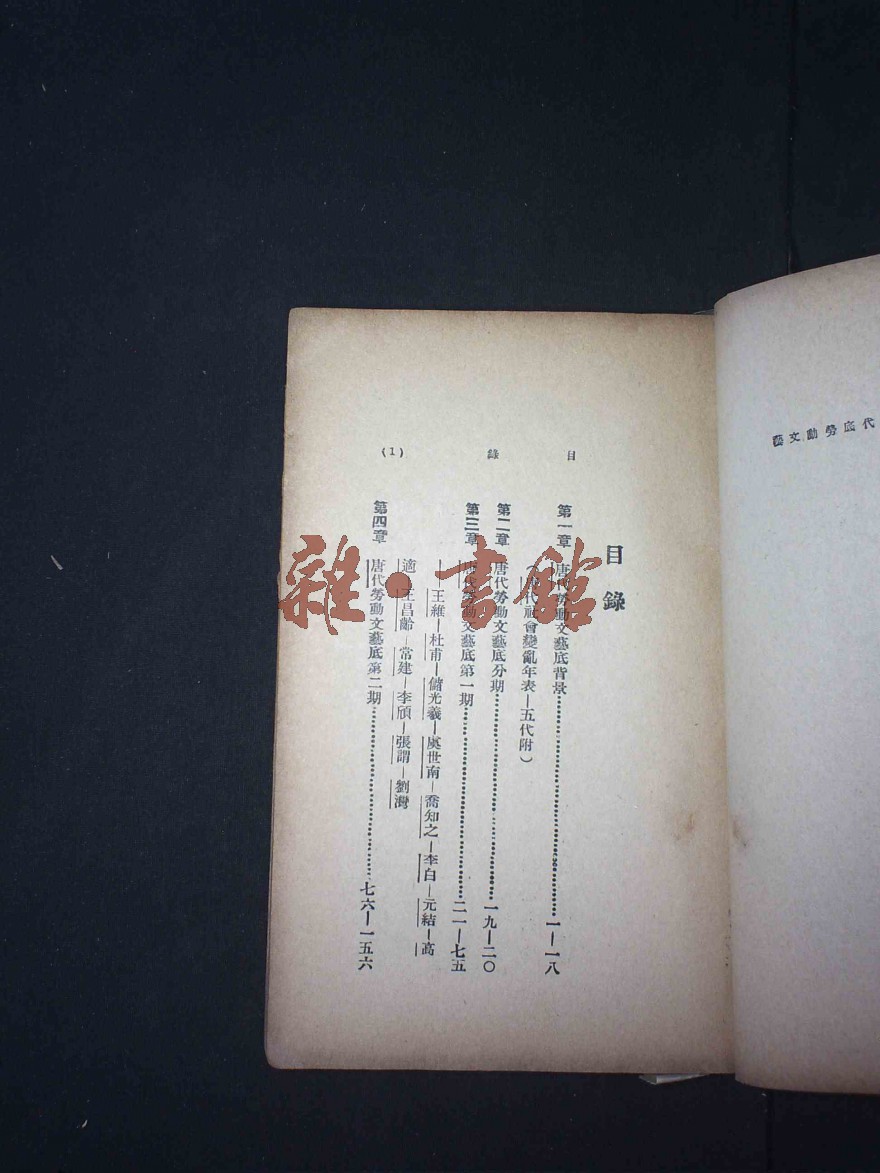 代底勞動文藝
目錄 (1)
目錄
第一章 唐代勞動文藝底背景……一—一八
(唐代社會變亂年表—五代附)
第二章 唐代勞動文藝底分期……一九—二〇
第三章 唐代勞動文藝底第一期……二一—七五
——王維—杜甫—儲光羲—虞世南—喬知之—李白—元結—高
適—王昌齡—常建—李頎—張謂—劉灣
第四章 唐代勞動文藝底第二期……七六—一五六
雜·書館